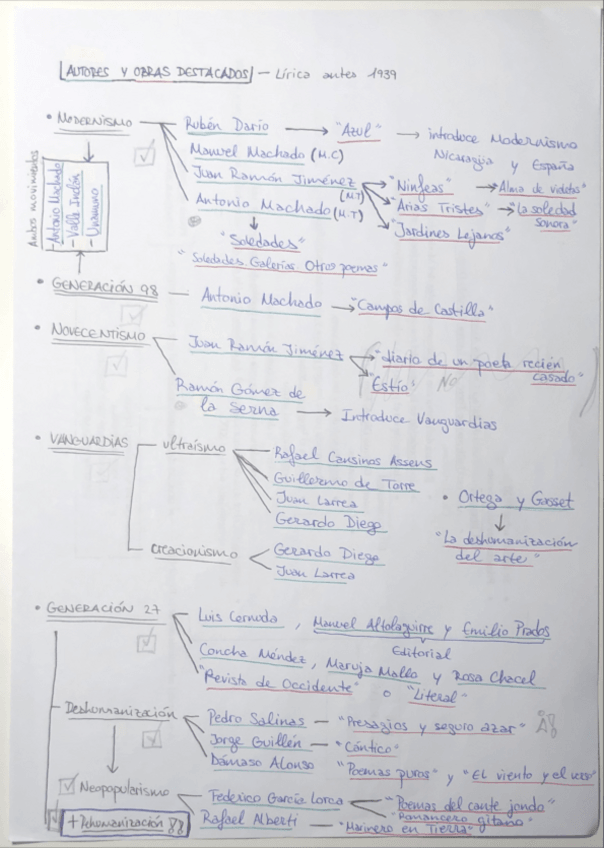 AUTORES Y OBRAS DESTACADOS - Lírica antes 1939
• MODERNISMO
Rubén Darío → "Azul" → introduce Modernismo
Nicaragua y España
Manuel Machado (M.C)
Juan Ramón Jiménez (M.T)
"Ninfeas" → Alma de violetas"
"Arias Tristes" → "La soledad
sonora"
"Jardines Lejanos"
Antonio Machado (M.T)
"Soledades"
"Soledades Galerías Otros poemas"
Ambos movimientos
- Antonio Machado
- Valle Inclán
- Unamuno
• GENERACIÓN 98 — Antonio Machado → "Campos de Castilla"
• NOVECENTISMO
Juan Ramón Jiménez
"diario de un poeta recién
casado"
"Estío" No
Ramón Gómez de
la Serna → Introduce Vanguardias
• VANGUARDIAS
ultraísmo
Rafael Cansinos Assens
Guillermo de Torre
Juan Larrea
Gerardo Diego
Creacionismo
Gerardo Diego
Juan Larrea
• Ortega y Gasset
"La deshumanización
del arte"
• GENERACIÓN 27
Luis Cernuda, Manuel Altolaguirre y Emilio Prados
Editorial
Concha Méndez, Maruja Mallo y Rosa Chacel
"Revista de Occidente" o "Literal"
Deshumanización
Pedro Salinas — "Presagios y seguro azar"
Jorge Guillén — "Cántico"
Dámaso Alonso "Poemas puros" y "El viento y el verso"
Neopopularismo
Federico García Lorca
"Poemas del cante jondo"
"Romancero gitano"
Rafael Alberti — "Marinero en Tierra"
+ Rehumanización